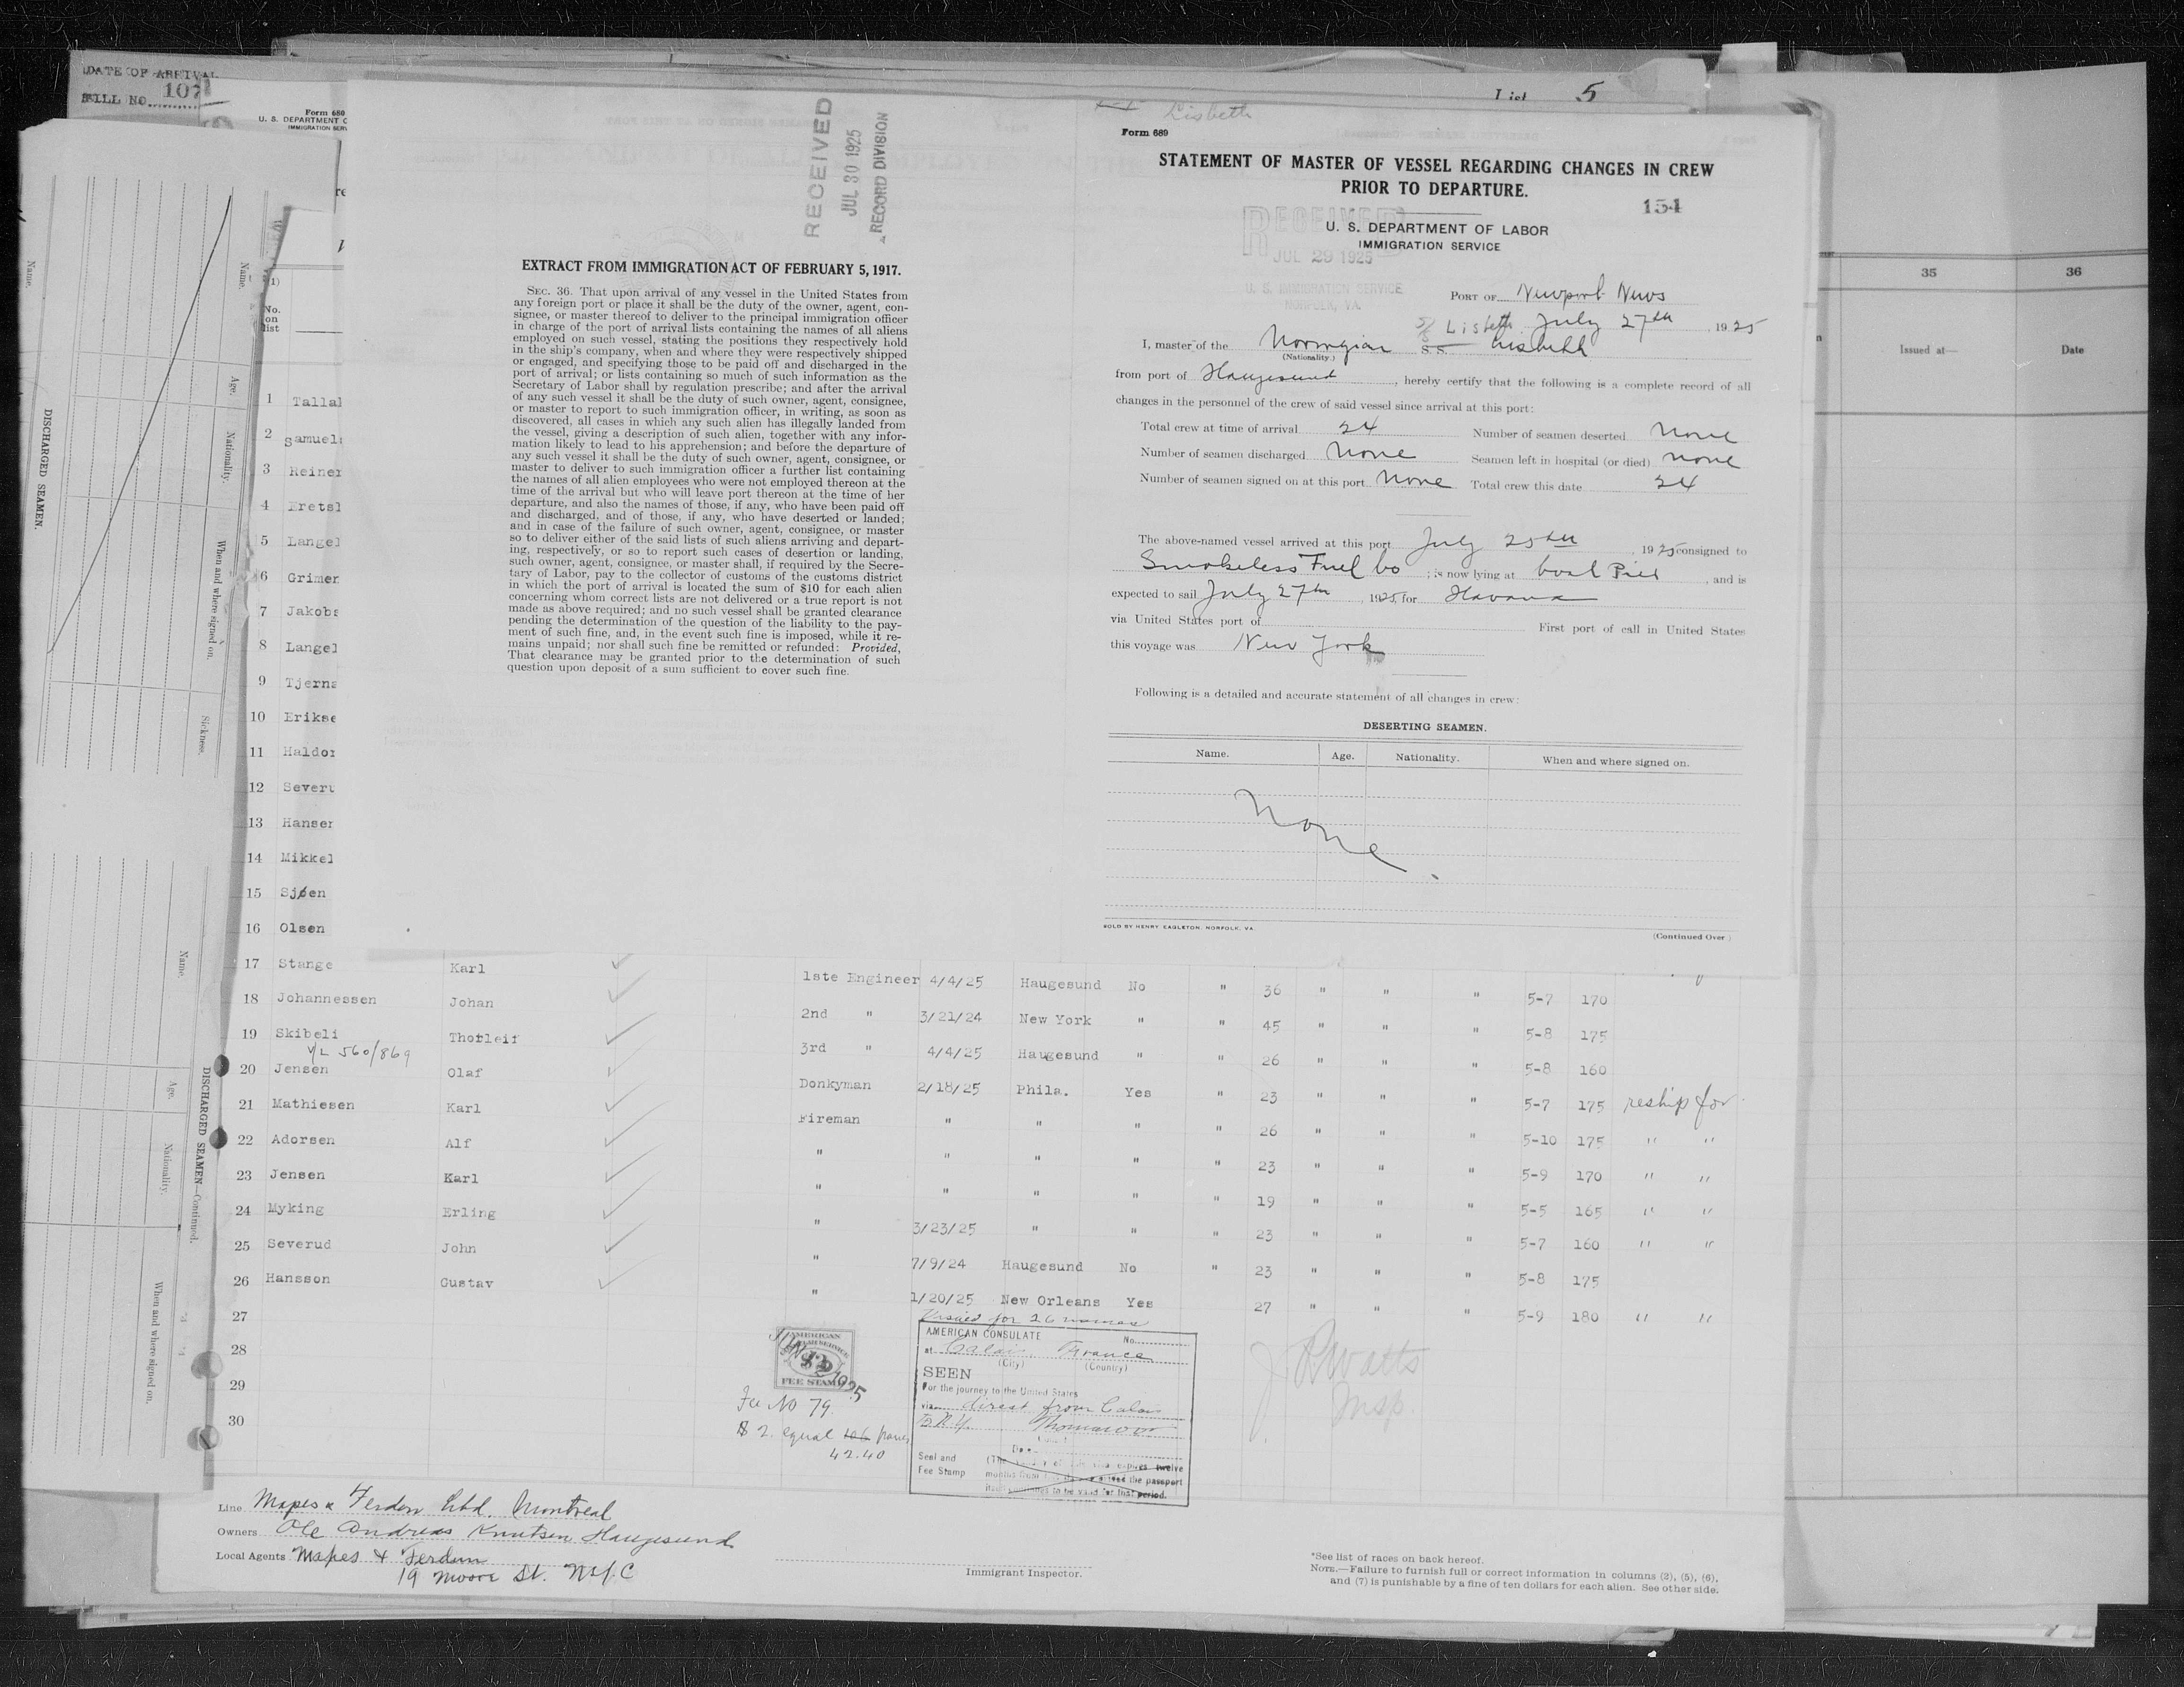 DATE OF ARRIVAL
BILL NO. 107
Form 680
U. S. DEPARTMENT O
IMMIGRATION SERV
List 5
(1)
No.
on
list
1 Tallal
2 Samuels
3 Reiner
4 Eretsl
5 Langel
6 Grimer
7 Jakobs
8 Langel
9 Tjerns
10 Erikse
11 Haldor
12 Severu
13 Hanser
14 Mikkel
15 Sjøen
16 Olsen
Name.
DISCHARGED SEAMEN.
Name.
Age.
Nationality.
When and where signed on.
Sickness.
Name.
Age.
Nationality.
When and where signed on.
DISCHARGED SEAMEN—Continued.
RECEIVED
JUL 30 1925
RECORD DIVISION
EXTRACT FROM IMMIGRATION ACT OF FEBRUARY 5, 1917.
SEC. 36. That upon arrival of any vessel in the United States from
any foreign port or place it shall be the duty of the owner, agent, con-
signee, or master thereof to deliver to the principal immigration officer
in charge of the port of arrival lists containing the names of all aliens
employed on such vessel, stating the positions they respectively hold
in the ship's company, when and where they were respectively shipped
or engaged, and specifying those to be paid off and discharged in the
port of arrival; or lists containing so much of such information as the
Secretary of Labor shall by regulation prescribe; and after the arrival
of any such vessel it shall be the duty of such owner, agent, consignee,
or master to report to such immigration officer, in writing, as soon as
discovered, all cases in which any such alien has illegally landed from
the vessel, giving a description of such alien, together with any infor-
mation likely to lead to his apprehension; and before the departure of
any such vessel it shall be the duty of such owner, agent, consignee, or
master to deliver to such immigration officer a further list containing
the names of all alien employees who were not employed thereon at the
time of the arrival but who will leave port thereon at the time of her
departure, and also the names of those, if any, who have been paid off
and discharged, and of those, if any, who have deserted or landed;
and in case of the failure of such owner, agent, consignee, or master
so to deliver either of the said lists of such aliens arriving and depart-
ing, respectively, or so to report such cases of desertion or landing,
such owner, agent, consignee, or master shall, if required by the Secre-
tary of Labor, pay to the collector of customs of the customs district
in which the port of arrival is located the sum of $10 for each alien
concerning whom correct lists are not delivered or a true report is not
made as above required; and no such vessel shall be granted clearance
pending the determination of the question of the liability to the pay-
ment of such fine, and, in the event such fine is imposed, while it re-
mains unpaid; nor shall such fine be remitted or refunded: Provided,
That clearance may be granted prior to the determination of such
question upon deposit of a sum sufficient to cover such fine.
Lisbeth
Form 689
STATEMENT OF MASTER OF VESSEL REGARDING CHANGES IN CREW
PRIOR TO DEPARTURE.
154
U. S. DEPARTMENT OF LABOR
IMMIGRATION SERVICE
RECEIVED
JUL 29 1925
U. S. IMMIGRATION SERVICE
NORFOLK, VA.
PORT OF Newport News
S/S Lisbeth July 27th, 1925
I, master of the Norwegian S. S. Lisbeth
(Nationality.)
from port of Haugesund, hereby certify that the following is a complete record of all
changes in the personnel of the crew of said vessel since arrival at this port:
Total crew at time of arrival 24 Number of seamen deserted None
Number of seamen discharged None Seamen left in hospital (or died) None
Number of seamen signed on at this port None Total crew this date 24
The above-named vessel arrived at this port July 25th, 1925 consigned to
Smokeless Fuel Co; is now lying at Coal Pier, and is
expected to sail July 27th, 1925, for Havana
via United States port of First port of call in United States
this voyage was New York
Following is a detailed and accurate statement of all changes in crew:
DESERTING SEAMEN.
Name. Age. Nationality. When and where signed on.
None.
SOLD BY HENRY EAGLETON, NORFOLK, VA.
(Continued Over)
35 36
Issued at— Date
17 Stange Karl 1ste Engineer 4/4/25 Haugesund No " 36 " " " 5-7 170
18 Johannessen Johan 2nd " 3/21/24 New York " " 45 " " " 5-8 175
19 Skibeli Thorleif 3rd " 4/4/25 Haugesund " " 26 " " " 5-8 160
V/L 560/869
20 Jensen Olaf Donkyman 2/18/25 Phila. Yes " 23 " " " 5-7 175 reship for
21 Mathiesen Karl Fireman " " " " 26 " " " 5-10 175 " "
22 Adorsen Alf " " " " " 23 " " " 5-9 170 " "
23 Jensen Karl " " " " " 19 " " " 5-5 165 " "
24 Myking Erling " 3/23/25 " " " 23 " " " 5-7 160 " "
25 Severud John " 7/9/24 Haugesund No " 23 " " " 5-8 175
26 Hansson Gustav " 1/20/25 New Orleans Yes 27 " " " 5-9 180 " "
27
28
29
30
Visaed for 26 names
AMERICAN CONSULATE No.
at Calais France
(City) (Country)
SEEN
For the journey to the United States
via direct from Calais
to N.Y.
Seal and
Fee Stamp
AMERICAN
FEE STAMP
JUN 1925
Fee No 79.
$ 2. equal 106 francs
42.40
J. R. Watts
Insp.
Line Mapes & Ferdon Ltd. Montreal
Owners Ole Andreas Knutsen Haugesund
Local Agents Mapes & Ferdon
19 Moore St. N.Y.C
Immigrant Inspector.
*See list of races on back hereof.
NOTE.—Failure to furnish full or correct information in columns (2), (5), (6),
and (7) is punishable by a fine of ten dollars for each alien. See other side.